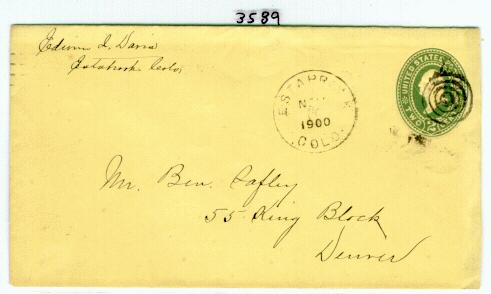 3589
Edwin I. Davis
Estabrook Colo,
ESTABROOK
NOV
1900
COLO.
UNITED STATES
TWO 2 CENTS
Mr. Ben. Cafley
55 King Block
Denver